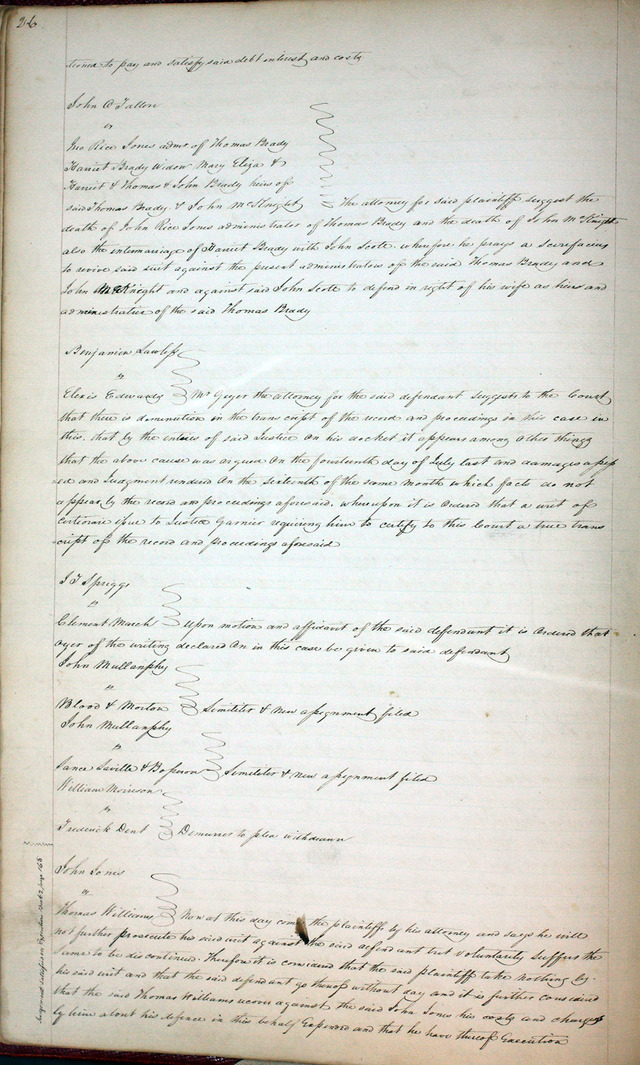 26
tioned to pay and satisfy said debt interest and costs
John O Fallon
vs
Jno Rice Jones admr of Thomas Brady
Harriet Brady Widow Mary Eliza &
Harriet & Thomas & John Brady heirs of
said Thomas Brady & John McKnight The attorney for said plaintiff suggest the
death of John Rice Jones administrator of Thomas Brady and the death of John McKnight
also the intermarriage of Harriet Brady with John Scott wherefore he prays a scirefacias
to revive said suit against the present administrators of the said Thomas Brady and
John McKnight and against said John Scott to defend in right of his wife as heirs and
administratrix of the said Thomas Brady
Benjamin Lawless
vs
Elexis Edwards Mr Geyer the attorney for the said defendant suggests to the Court
that there is diminution in the transcript of the record and proceedings in this case in
this. that by the entries of said Justice on his docket it appears among other things
that the above cause was argued on the fourteenth day of July last and damages assess
ed and Judgment rendered on the sixteenth of the same month which facts do not
appear by the record and proceedings aforesaid. whereupon it is Ordered that a writ of
certiorari issue to Justice Garnier requiring him to certify to this Court a true trans
cript of the record and proceedings aforesaid
J T Spriggs
vs
Clement March Upon motion and affidavit of the said defendant it is Ordered that
oyer of the writing declared on in this case be given to said defendant
John Mullanphy
vs
Blood & Morton Similiter & New assignment filed
John Mullanphy
vs
Lance Saville & Bosseron Similiter & New assignment filed
William Morrison
vs
Frederick Dent Demurrer to plea withdrawn
John Jones
vs
Thomas Williams Now at this day comes the plaintiff by his attorney and says he will
not further prosecute his said suit against the said defendant but voluntarily suffers the
same to be discontinued. Therefore it is considered that the said plaintiff take nothing by
his said writ and that the said defendant go thereof without day and it is further considered
that the said Thomas Williams recover against the said John Jones his costs and charges
by him about his defence in this behalf Expended and that he have thereof Execution
Judgment satisfied